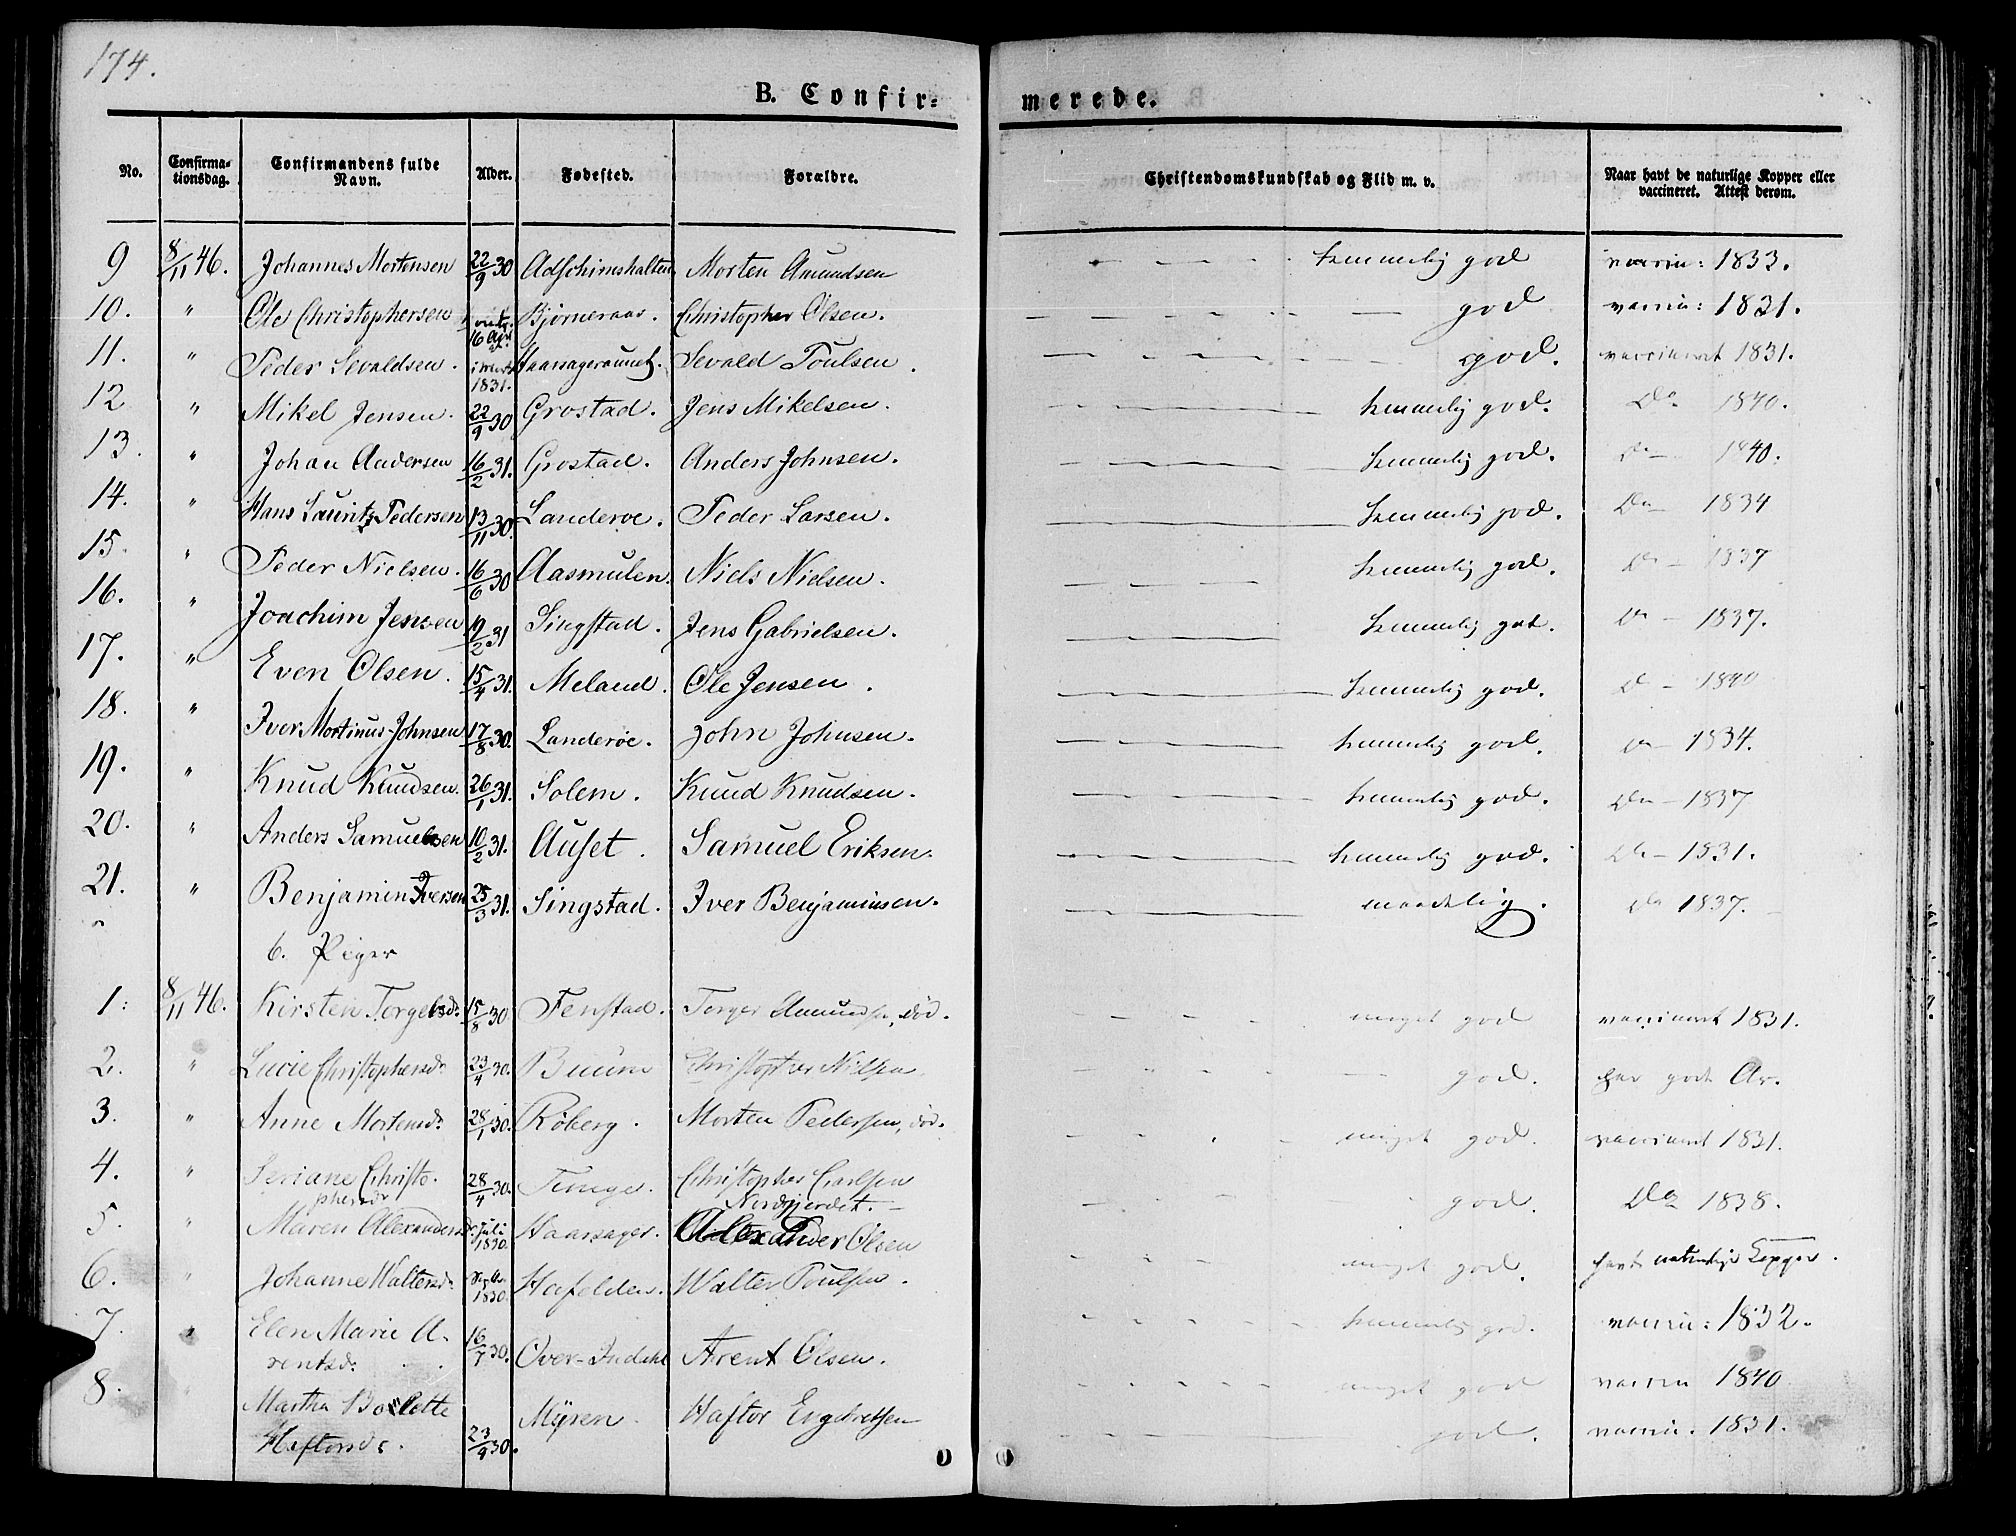 174.
B. Confir-
merede.
No. Confirma-tionsdag. Confirmandens fulde Navn. Alder. Fødested. Forældre. Christendomskundskab og Flid m. v. Naar havt de naturlige Kopper eller vaccineret. Attest derom.
9 8/11 46. Johannes Mortensen 22/9 30 Morten Amundsen temmelig god vaccin: 1833.
10. " Ole Christophersen 16 Apr. Bjørneraas. Christopher Olsen. god vaccin: 1831.
11. " Peder Sevaldsen. 1831. Sevald Poulsen. god. vaccineret 1831.
12 " Mikel Jensen. 22/9 30 Grostad. Jens Mikelsen. temmelig god. Do 1840.
13. " Johan Andersen 16/2 31. Grostad. Anders Johnsen. temmelig god. Do 1840.
14. " Hans Lauritz Pedersen 13/11 30. Landerøe. Peder Larsen. temmelig god. Do 1834
15. " Peder Nielsen. 16/6 30 Aasmulen. Niels Nielsen. temmelig god. Do 1837
16. " Joachim Jensen 19/2 31 Singstad. Jens Gabrielsen. temmelig god. Do 1837.
17. " Even Olsen. 15/4 31. Meland. Ole Jensen. temmelig god. Do 1840
18. " Iver Mortinus Johnsen 17/8 30. Landerøe. John Johnsen. temmelig god. Do 1834.
19. " Knud Knudsen. 26/1 31. Solem. Knud Knudsen. temmelig god. Do 1837
20. " Anders Samuelsen 10/2 31. Auset. Samuel Eriksen. temmelig god. Do 1831.
21. " Benjamin Iversen 25/3 31. Singstad. Iver Benjaminsen. maadelig. Do 1837.
b. Piger
1. 8/11 46. Kirsten Torgersd. 15/8 30 Fenstad. Torger Amundsen, död. meget god vaccineret 1831.
2. " Lucie Christophersd. 23/4 30. Buum Christopher Nilsen god. har godt Ar.
3. " Anne Mortensd. 28/1 30. Röberg. Morten Pedersen, död. meget god. vaccineret 1831.
4. " Seriane Christo-
phersdr 28/4 30. Christopher Carlsen
Nordgjerdet. god. Do 1838.
5. " Maren Alexandersdr Juli 1830. Haarsager. Alexander Olsen meget god. havt naturlige Kopper.
6. " Johanne Waltersd. 1830. Hafelden. Walter Poulsen. temmelig god. vaccin: 1832.
7. " Elen Marie A-
rentsd. 16/7 30. Over-Indahl Arent Olsen. meget god vaccin 1840
8. " Martha Bollette
Haftorsdr. 23/9 30. Myren. Haftor Engebretsen god. vaccin. 1831.